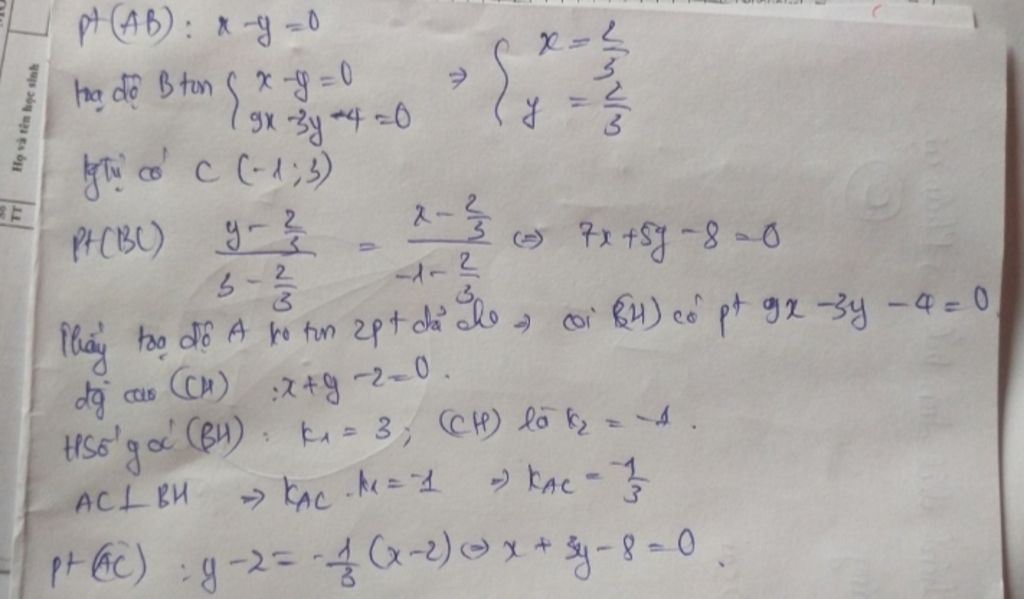 Họ và tên học sinh
Số TT
pt(AB): x - y = 0
toạ độ B tm { x - y = 0 9x - 3y - 4 = 0 => { x = 2/3 y = 2/3
tg tự có C (-1; 3)
pt(BC) (y - 2/3)/(3 - 2/3) = (x - 2/3)/(-1 - 2/3) <=> 7x + 5y - 8 = 0
Thấy toạ độ A ko tm 2pt đã cho => coi (BH) có pt 9x - 3y - 4 = 0
đg cao (CH) : x + y - 2 = 0.
HSố góc (BH): k1 = 3; (CH) là k2 = -1.
AC⊥BH => kAC . k1 = -1 => kAC = -1/3
pt(AC) : y - 2 = -1/3 (x - 2) <=> x + 3y - 8 = 0.